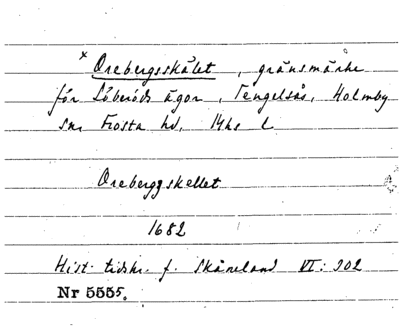 x Orebergsskälet, gränsmärke
för Löberöds ägor, Tengelsås, Holmby
sn. Frosta hd, Mhs L
Orebergskellet
1682
Hist. tidskr. f. Skåneland VI: 302
Nr 5555.